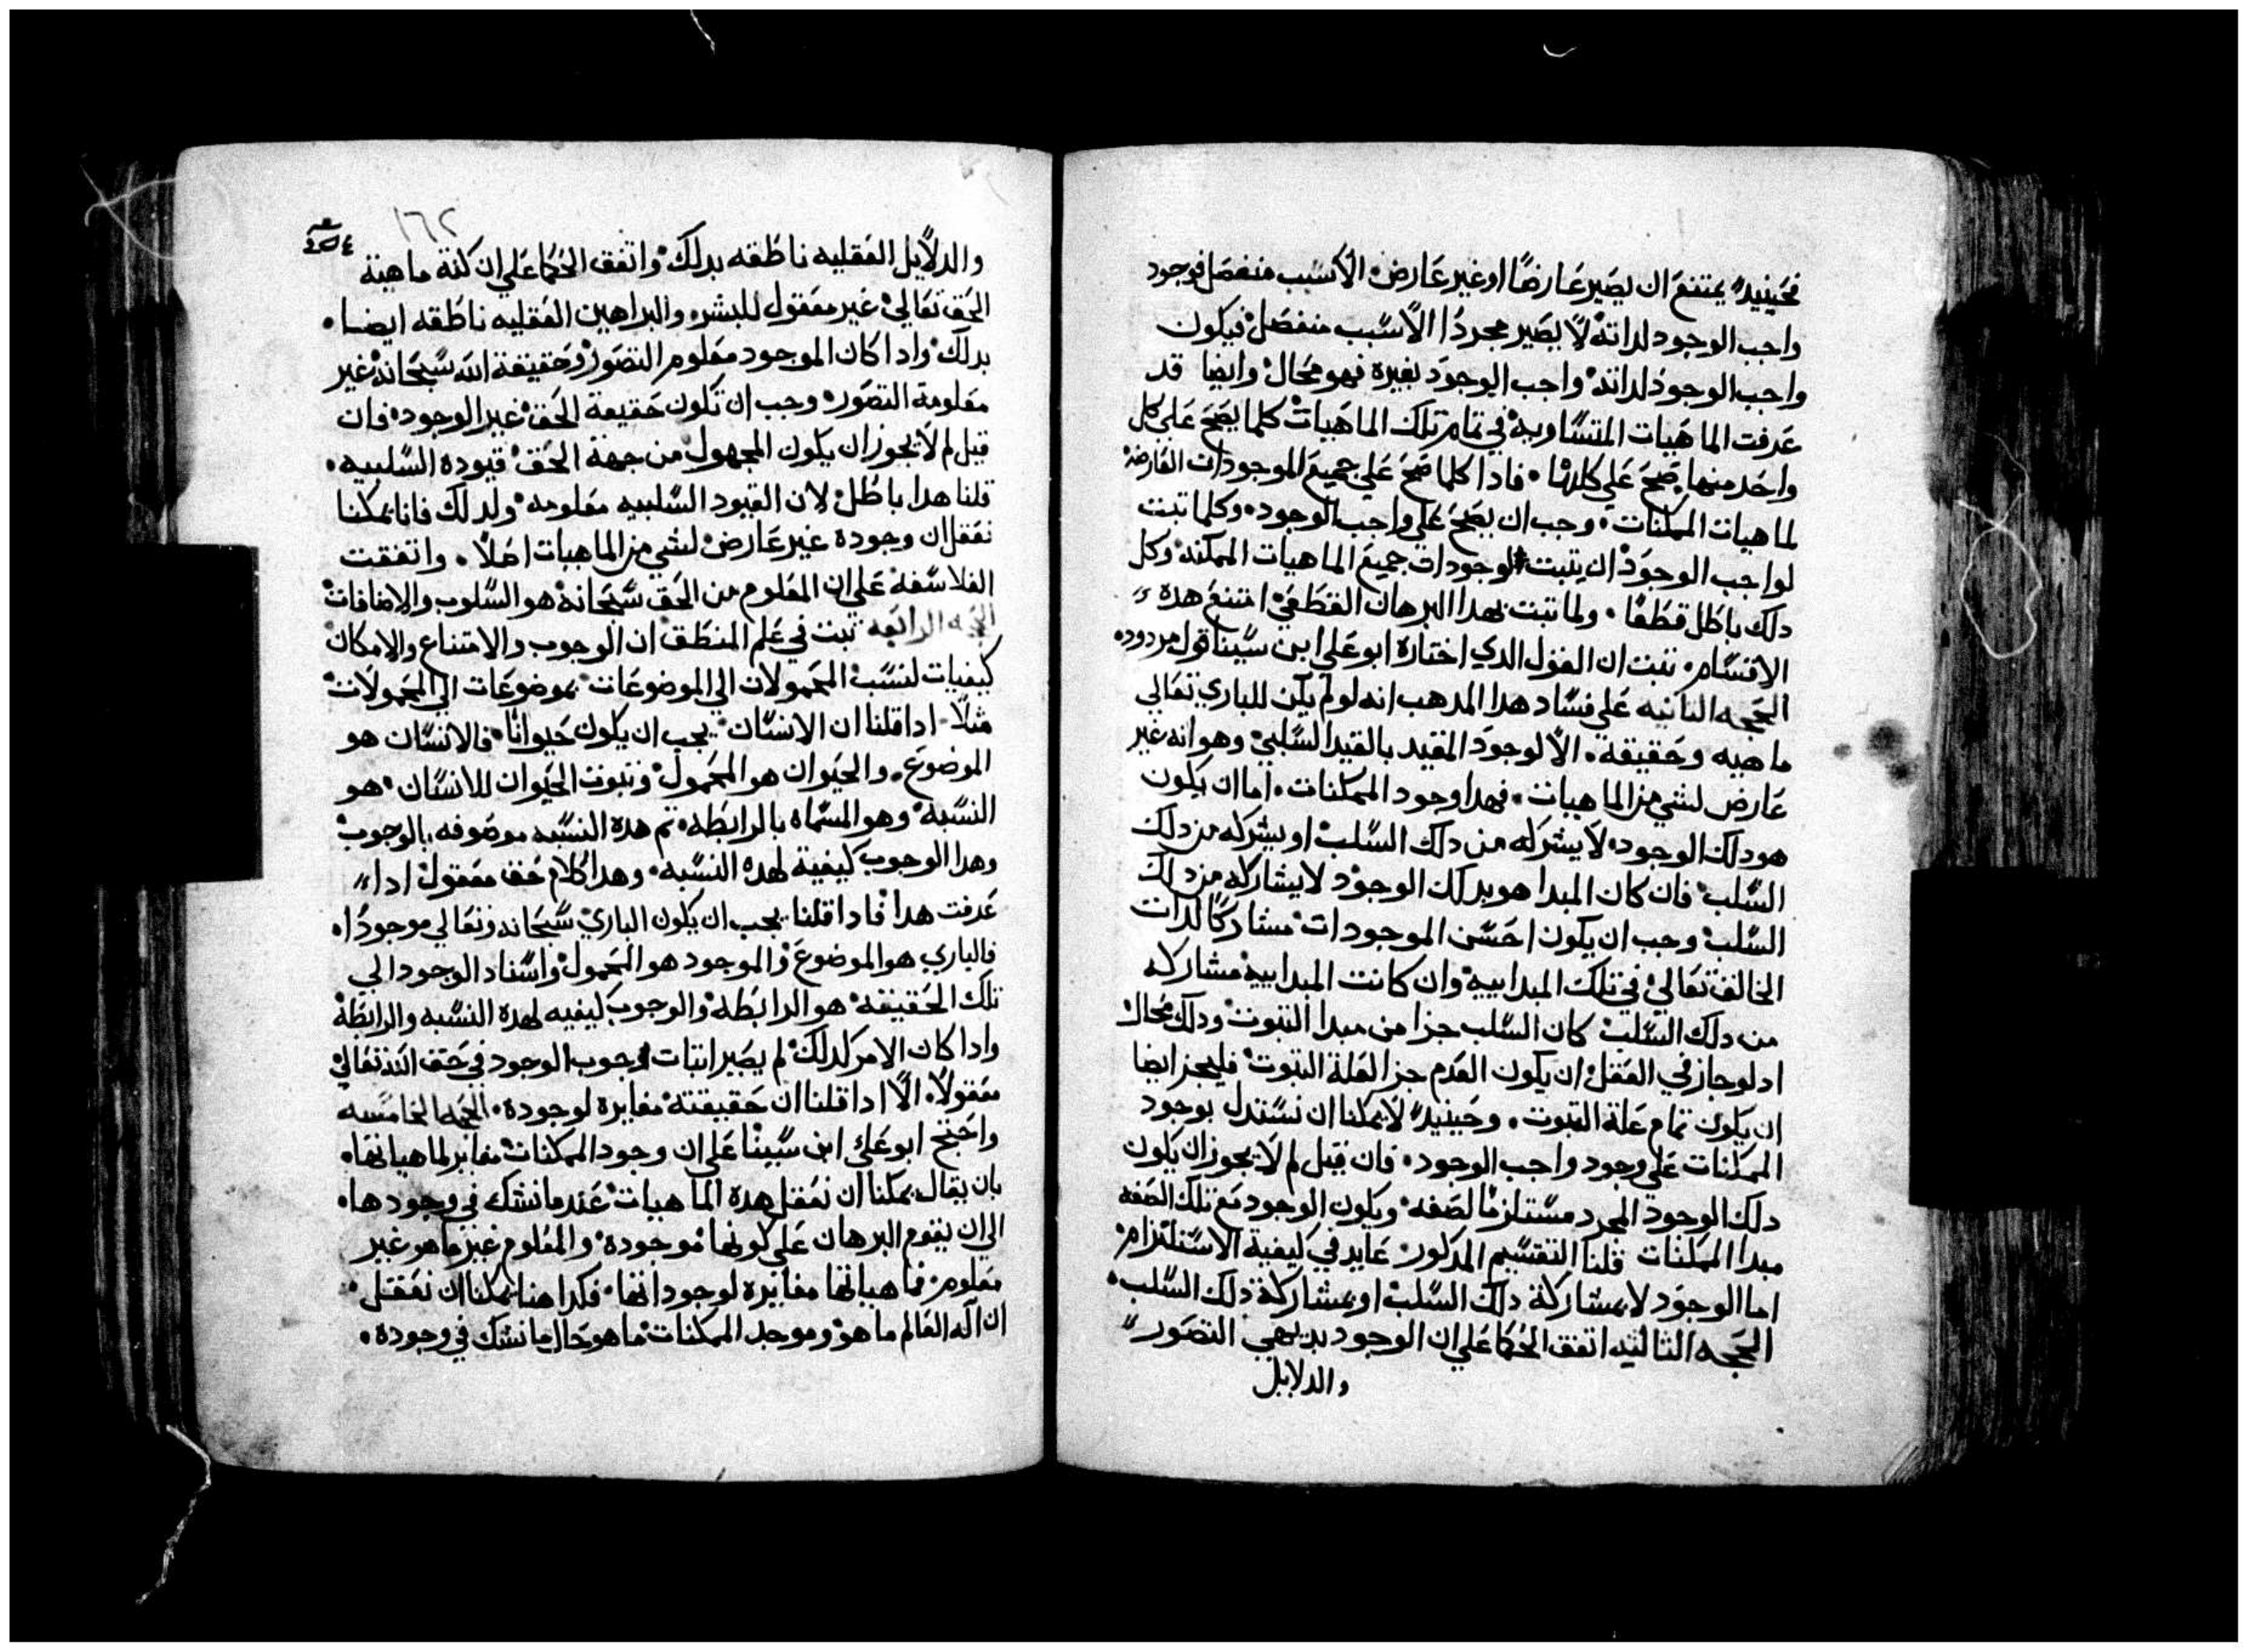 فحينيد يمتنع ان يصير عارضًا او غير عارض الا لسبب منفصل فوجود
واجب الوجود لداته لا يصير مجردًا الا لسبب منفصل فيكون
واجب الوجود لداته واجب الوجود بغيره فهو محال وايضا قد
عرفت الماهيات المتساويه في تمام تلك الماهيات كلما يصح على كل
واحد منها صح على كلها فادا كلما صح على جميع الموجودات العارضة
لماهيات الممكنات وجب ان يصح على واجب الوجود وكلما تبت
لواجب الوجود ان يتبت لوجودات جميع الماهيات الممكنه وكل
دلك باطل قطعًا ولما تبت بهدا البرهان القطعي امتنع هده
الاقسام تبت ان القول الدي اختاره ابو علي ابن سينا قول مردود
الحجه التانيه على فساد هدا المدهب انه لو لم يكن للباري تعالى
ماهيه وحقيقه الا لوجود المقيد بالقيد السلبي وهو انه غير
عارض لشي من الماهيات فهدا وجود الممكنات اما ان يكون
هو دلك الوجود لا يشركه من دلك السلب او يشركه من دلك
السلب فان كان المبدا هو بدلك الوجود لا يشاركه من دلك
السلب وجب ان يكون احسن الموجودات مشاركًا لدات
الخالق تعالي في تلك المبداييه وان كانت المبداييه مشاركه
من دلك السلب كان السلب جزا من مبدا التبوت ودلك محال
اد لو جاز في العقل ان يكون العدم جزا لعلة التبوت فليجز ايضا
ان يكون تمام علة التبوت وحينيد لا يمكنا ان نستدل بوجود
الممكنات على وجود واجب الوجود فان قيل لم لا يجوز ان يكون
دلك الوجود المجرد مستلزمًا لصفه ويكون الوجود مع تلك الصفه
مبدا الممكنات قلنا التقسيم المدكور عايد في كيفية الاستلزام
اما الوجود لا بمشاركة دلك السلب او بمشاركة دلك السلب
الحجه التالتيه اتفق الحكما على ان الوجود بديهي التصور
والدلايل
١٦٢
والدلايل العقليه ناطقه بدلك واتفق الحكما علي ان كنة ماهية
الحق تعالي غير معقول للبشر والبراهين العقليه ناطقه ايضا
بدلك وادا كان الموجود معلوم التصور وحقيقة الله سبحانه غير
معلومة التصور وجب ان تكون حقيقة الحق غير الوجود فان
قيل لم لا يجوز ان يكون المجهول من جهة الحق قيوده السلبيه
قلنا هدا باطل لان القيود السلبيه معلومه ولدلك فانا يمكنا
نعقل ان وجوده غير عارض لشي من الماهيات اصلًا واتفقت
الفلاسفه على ان المعلوم من الحق سبحانه هو السلوب والاضافات
الحجه الرابعه تبت في علم المنطق ان الوجوب والامتناع والامكان
كيفيات لنسب المحمولات الي الموضوعات بموضوعات الي المحمولات
مثلًا ادا قلنا ان الانسان يجب ان يكون حيوانًا فالانسان هو
الموضوع والحيوان هو المحمول وتبوت الحيوان للانسان هو
النسبه وهو المسماه بالرابطه تم هده النسبه موصوفه بالوجوب
وهدا الوجوب كيفية لهده النسبه وهدا كلام حق معقول ادا
عرفت هدا فادا قلنا يجب ان يكون الباري سبحانه وتعالي موجودًا
فالباري هو الموضوع والموجود هو المحمول واسناد الوجود الي
تلك الحقيقه هو الرابطه والوجوب كيفيه لهده النسبه والرابطة
وادا كان الامر كدلك لم يصير اتبات وجوب الوجود في حق الله تعالي
معقولًا الا ادا قلنا ان حقيقته مغايره لوجوده الحجه الخامسه
واحتج ابو علي ابن سينا على ان وجود الممكنات مغاير لماهياتها
بان يقال يمكنا ان نعقل هده الماهيات عند ما نشك في وجودها
الي ان يقوم البرهان علي كونها موجوده والمعلوم غير ما هو غير
معلوم فماهياتها مغايره لوجوداتها فكدا هنا يمكنا ان نعقل
ان اله العالم ما هو وموجد الممكنات ما هو حال ما نشك في وجوده